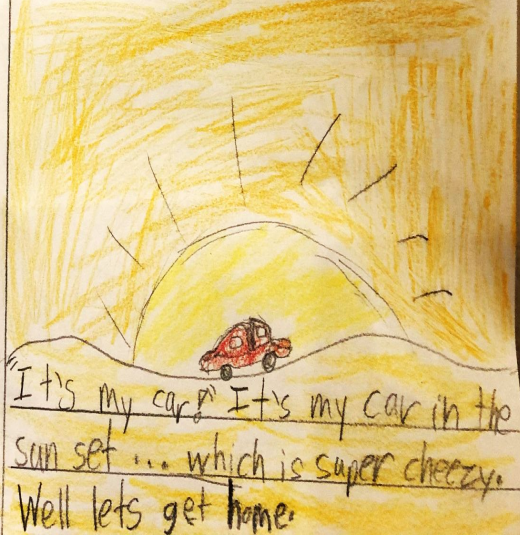 "It's my car!" It's my car in the
sun set... which is super cheezy.
Well lets get home.